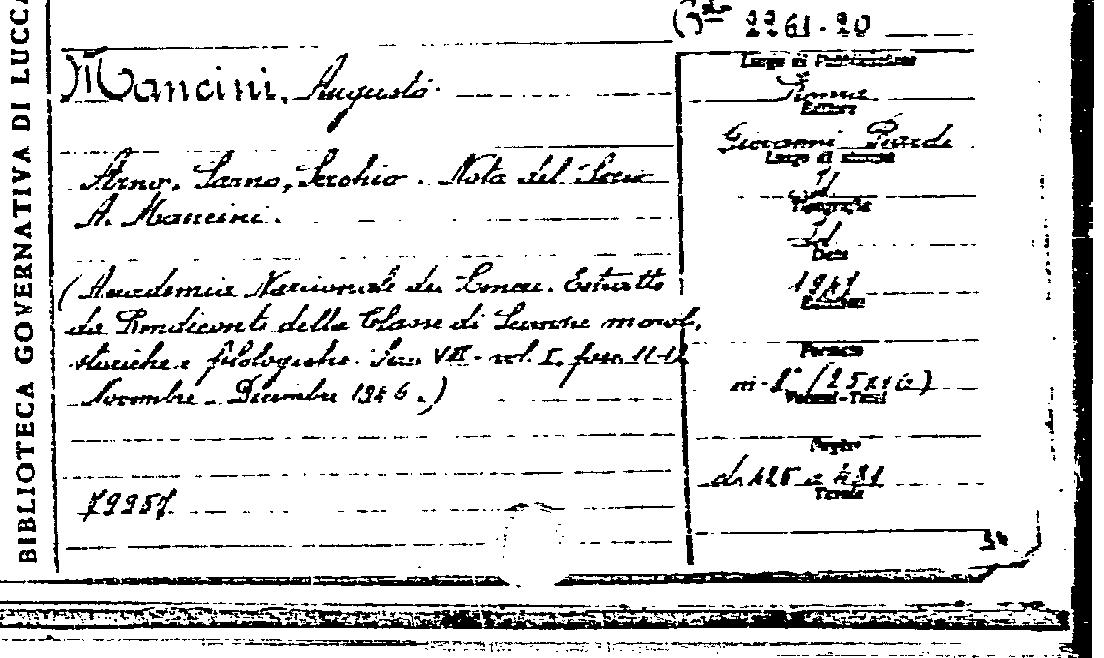 BIBLIOTECA GOVERNATIVA DI LUCCA
2261-20
Mancini, Augusto.
Arno, Sarno, Serchio. Nota del Socio
A. Mancini.
(Accademia Nazionale dei Lincei. Estratto
dai Rendiconti della Classe di Scienze morali,
storiche e filologiche. Serie VIII - vol. I, fasc. 11-12
Novembre - Dicembre 1946.)
Luogo di Pubblicazione
Roma
Editore
Giovanni Bardi
Luogo di stampa
Id
Tipografia
Id
Data
1947
Edizione
Formato
in-8° (25x16)
Volumi-Tomi
Pagine
da 425 a 431
Tavole